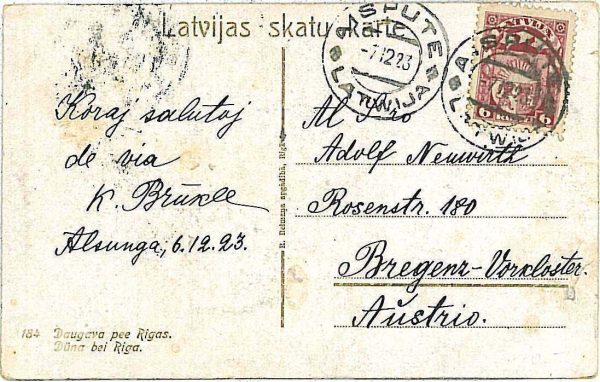 Latvijas skatu karte
AISPUTE
-7.12.23
LATWIJA
LATVIJA
6 6
Koraj salutoj
de via
K. Brūkle
Alsunga, 6.12.23.
Al S-ro
Adolf Neuwirth
Rosenstr. 180
Bregenz-Vorkloster.
Aŭstrio.
184 Daugava pee Rigas.
Düna bei Riga.